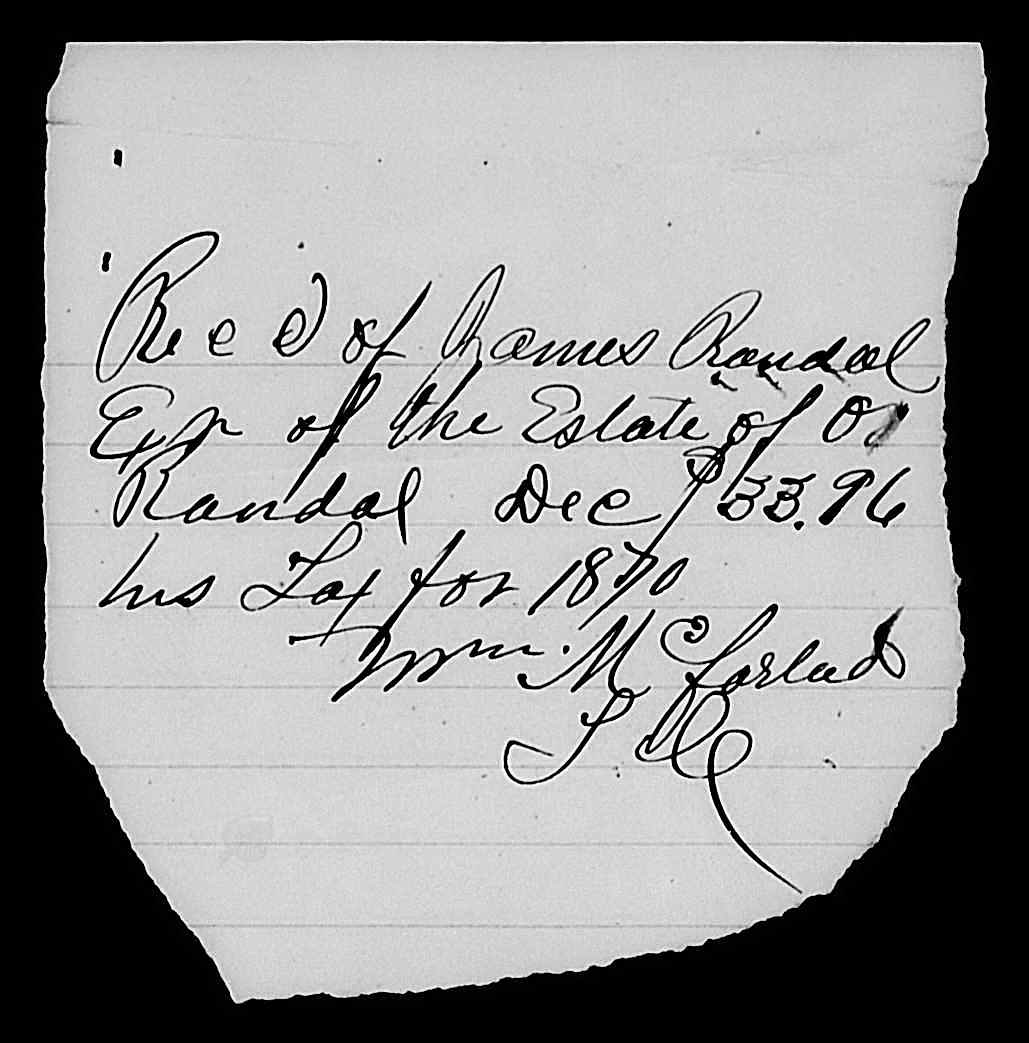 Rec d of James Randal
Exr of the Estate of
Randal Dec $33.96
his Tax for 1870
Wm. McFarland